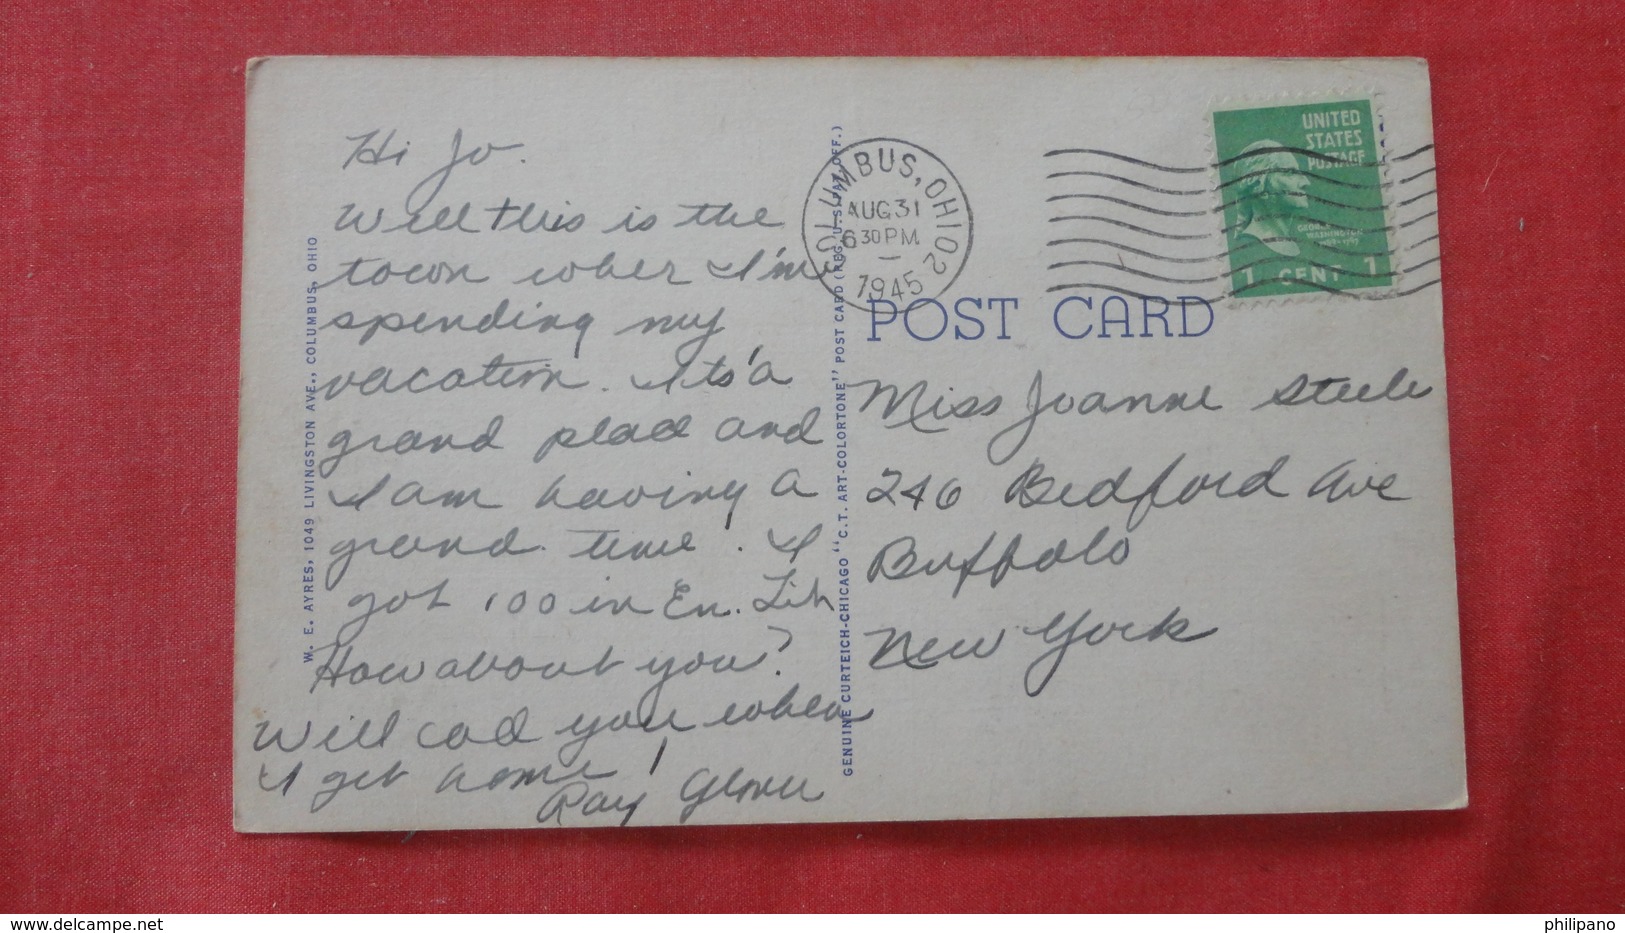 Hi Jo.
Well this is the
town wher I'm
spending my
vacation. Its' a
grand place and
I am having a
grand time. I
got 100 in En. Lit
How about you?
Will call you when
I get home!
Ray
W. E. AYRES, 1049 LIVINGSTON AVE., COLUMBUS, OHIO
GENUINE CURTEICH-CHICAGO "C.T. ART-COLORTONE" POST CARD (REG. U.S. PAT. OFF.)
COLUMBUS, OHIO 2
AUG 31
630 PM
1945
UNITED
STATES
POSTAGE
GEORGE
WASHINGTON
1789-1797
1 CENT 1
POST CARD
Miss Joanne Steele
246 Bedford Ave
Buffalo
New York
http://www.delcampe.net
philipano